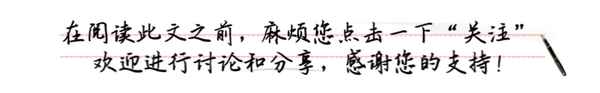 在阅读此文之前，麻烦您点击一下“关注”
欢迎进行讨论和分享，感谢您的支持！